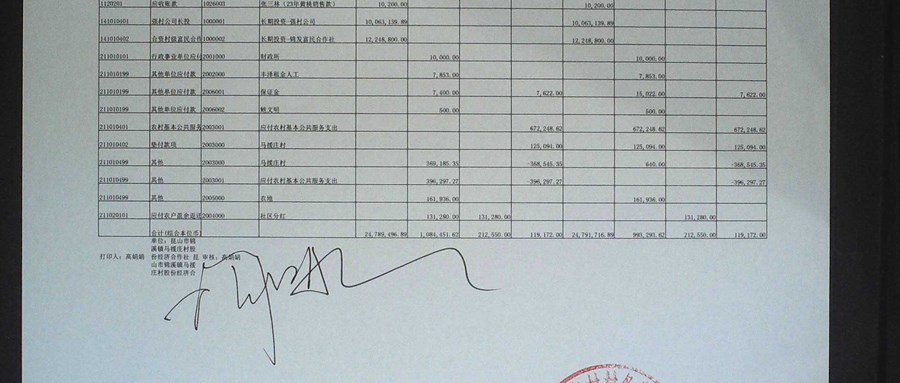 1120201 应收账款 1028003 张三林（23年黄桃销售款） 10,200.00 10,200.00
141010101 强村公司长投 1000001 长期投资-强村公司 10,063,139.89 10,063,139.89
141010402 合垫村级富民合作 1000002 长期投资-锦发富民合作社 12,248,800.00 12,248,800.00
211010101 行政事业单位应付 2001000 财政所 10,000.00 10,000.00
211010199 其他单位应付款 2002000 丰泽租金人工 7,853.00 7,853.00
211010199 其他单位应付款 2006001 保证金 7,400.00 7,622.00 15,022.00 7,622.00
211010199 其他单位应付款 2006002 顾文明 500.00 500.00
211010401 农村基本公共服务 2003001 应付农村基本公共服务支出 672,248.62 672,248.62 672,248.62
211010402 垫付款项 2003000 马援庄村 125,094.00 125,094.00 125,094.00
211010499 其他 2003000 马援庄村 369,185.35 -368,545.35 640.00 -368,545.35
211010499 其他 2003001 应付农村基本公共服务支出 396,297.27 -396,297.27 -396,297.27
211010499 其他 2005000 农地 161,936.00 161,936.00
211020101 应付农户盈余返还 2004000 社区分红 131,280.00 131,280.00 131,280.00
合计(综合本位币) 24,789,496.89 1,084,451.62 212,550.00 119,172.00 24,791,716.89 993,293.62 212,550.00 119,172.00
单位：昆山市锦
溪镇马援庄村股
打印人：高娟娟 份经济合作社 昆 审核：高娟娟
山市锦溪镇马援
庄村股份经济合